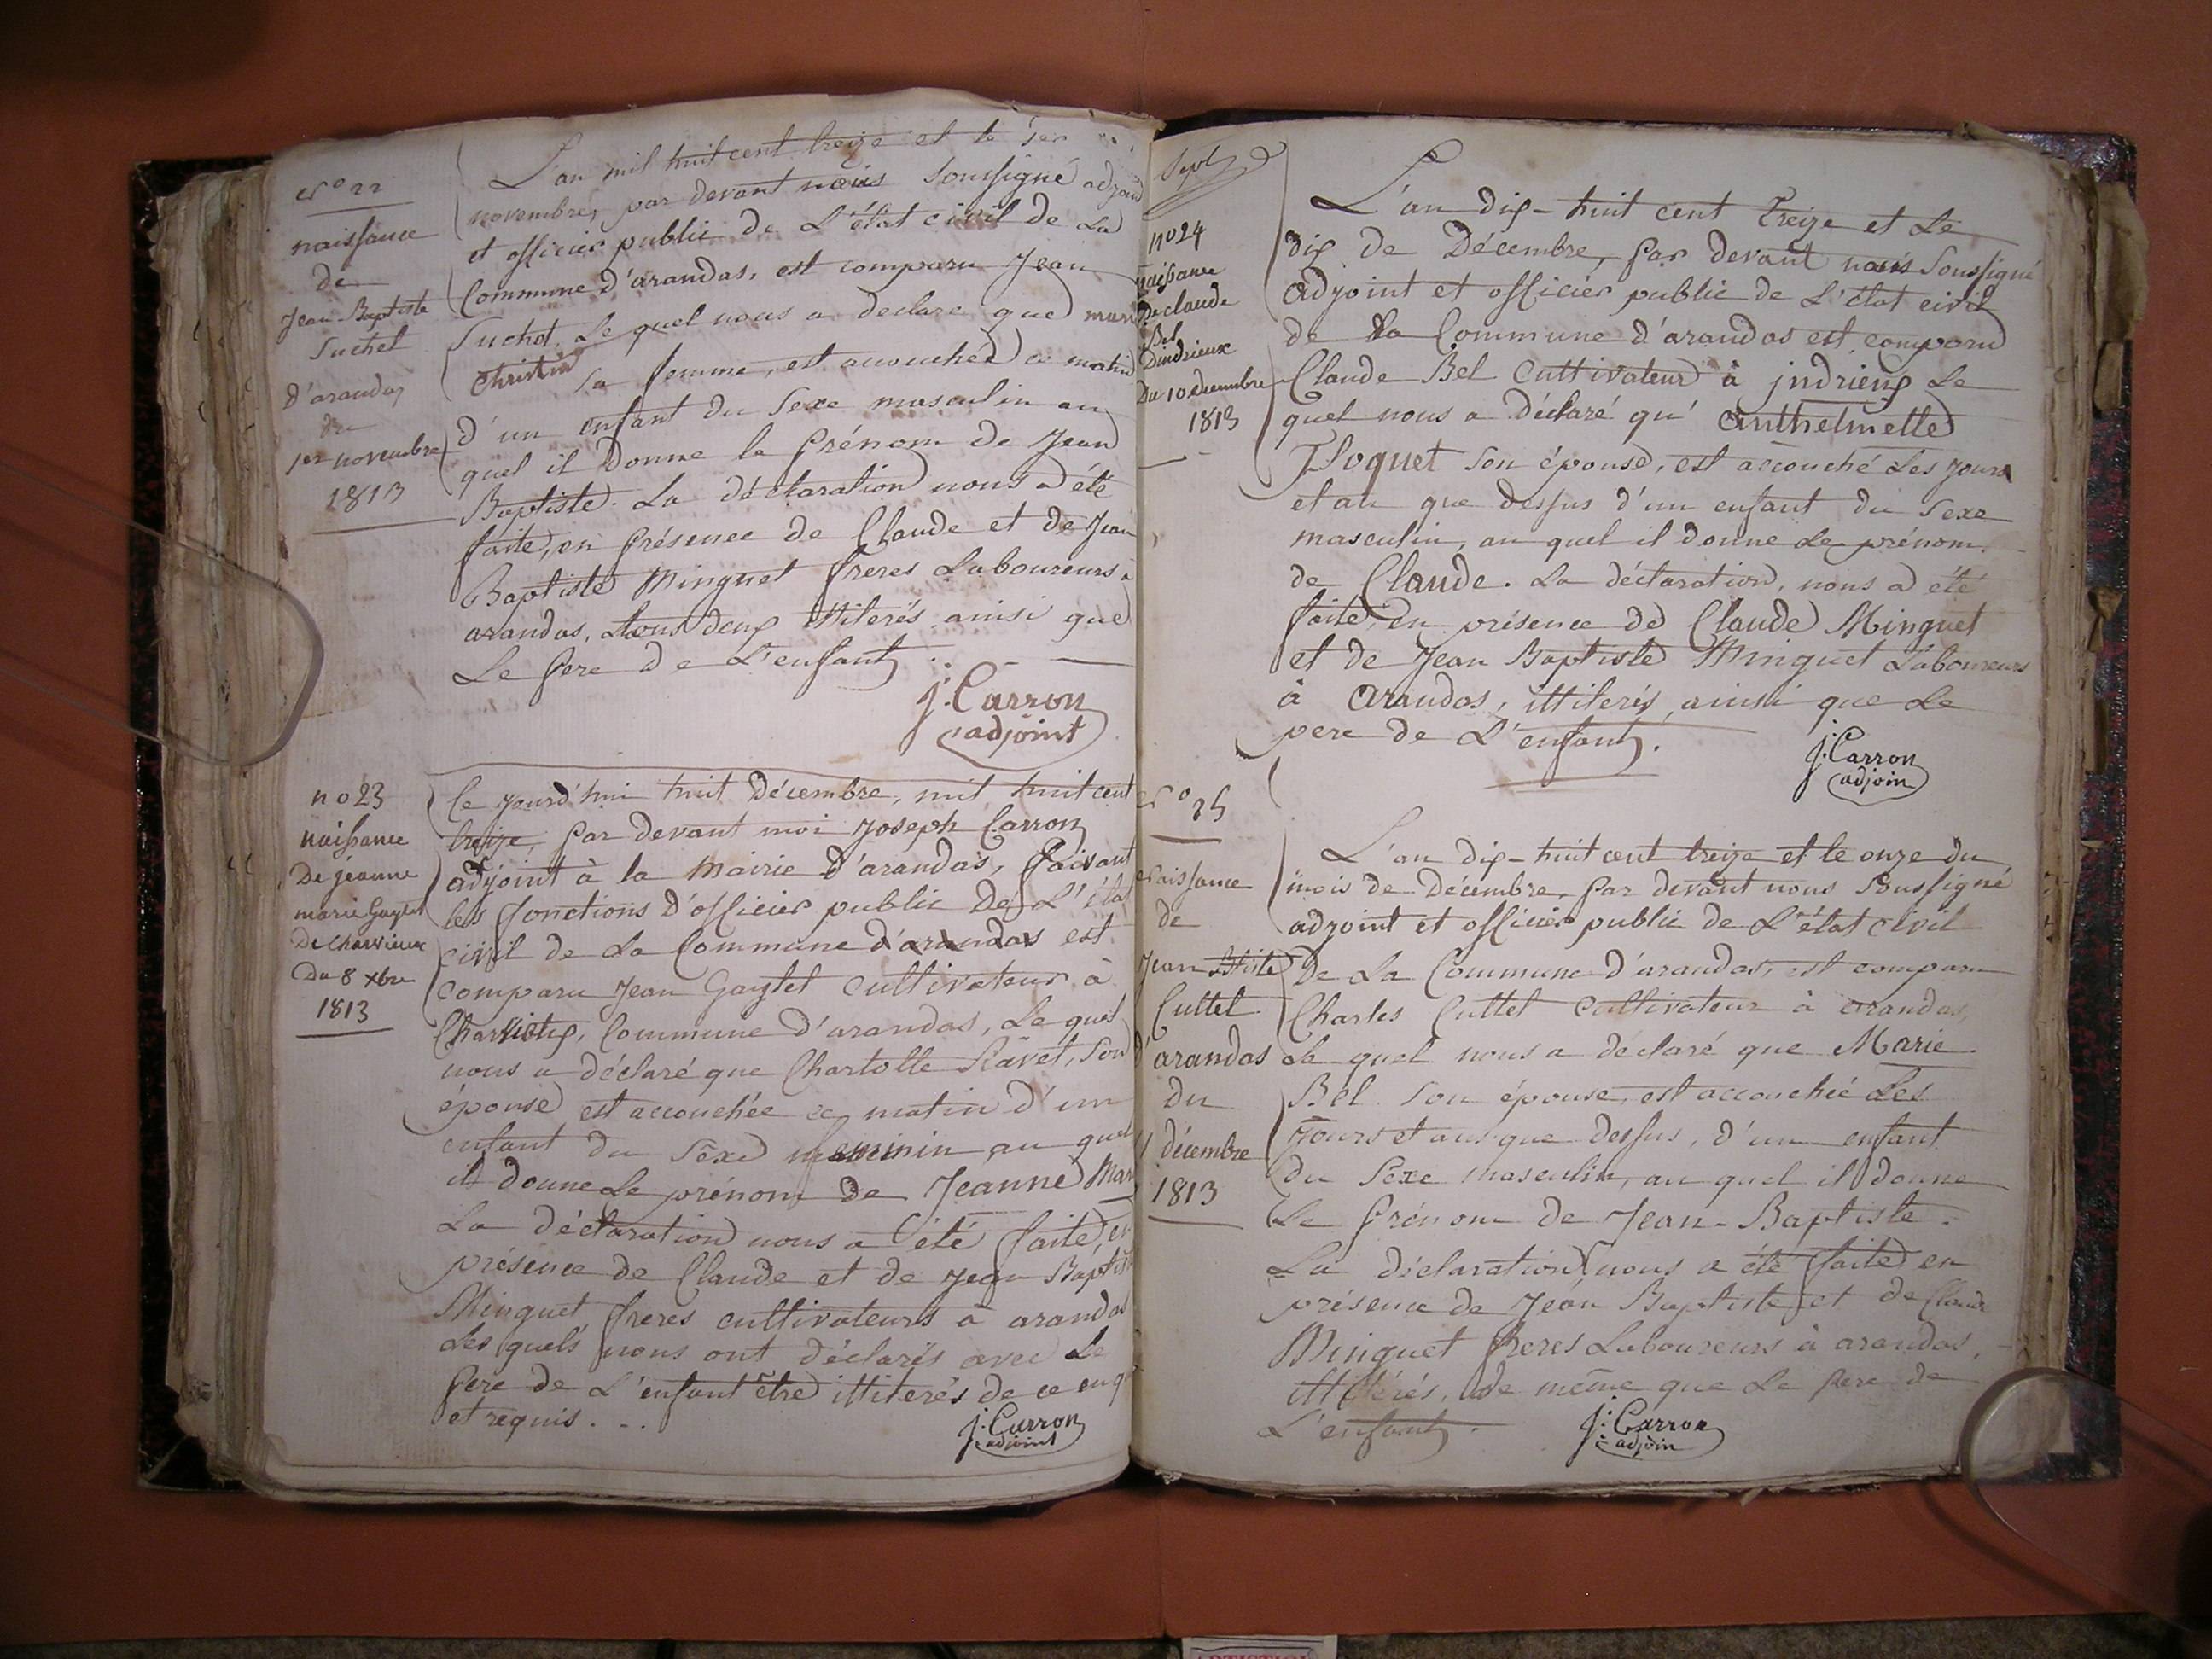 N° 22
naissance
de
Jean-Baptiste
Suchet
D'arandas
du
1er novembre
1813
L'an mil huit cent treize et le 1er
novembre, par devant nous soussigné adjoint
et officier public de L'état civil de La
Commune d'arandas, est comparu Jean
Suchet, Le quel nous a declaré que marie
Christin sa femme, est accouchée ce matin
d'un enfant du Sexe masculin au
quel il donne le prénom de Jean
Baptiste. La déclaration nous a été
faite, en présence de Claude et de Jean
Baptiste Minguet freres Laboureurs a
arandas, tous deux illiterés ainsi que
Le pere de L'enfant.
J: Carron
adjoint
no 23
naissance
De jeanne
marie Gaytet
De Charvieux
Du 8 xbre
1813
Ce jourd'hui huit Décembre, mil huit cent
treize, par devant moi Joseph Carron
adjoint à la Mairie d'arandas, faisant
les fonctions D'officier public De L'état
civil de La Commune d'arandas est
comparu Jean Gaytet cultivateur à
Commune d'arandas, Le quel
nous a déclaré que Charlotte Ravet, son
épouse est accouchée ce matin d'un
enfant du Sexe feminin au quel
il donne Le prénom de Jeanne Mar
La déclaration nous a été faite, en
présence de Claude et de Jean Baptist
Minguet freres cultivateurs à arandas
Les quels nous ont déclarés avec Le
pere de L'enfant être illiterés de ce enq
et requis. - .
J: Carron
adjoint
Sept
no 24
naissance
De claude
Bel
Dindrieux
Du 10 decembre
1813
L'an dix-huit cent Treize et Le
dix de Décembre, par devant nous Soussigné
adjoint et officier public de L'état civil
de La Commune d'arandas est comparu
Claude Bel Cultivateur à jndrieux Le
quel nous a déclaré qu' Anthelmette
Floquet son épouse, est accouché Les jours
et an que dessus d'un enfant du Sexe
masculin, au quel il donne Le prénom
de Claude. La déclaration, nous a été
faite, en présence de Claude Minguet
et de Jean Baptiste Minguet Laboureurs
à Arandas, illiterés, ainsi que Le
pere de L'enfant.
J: Carron
adjoin
N° 25
Naissance
de
Jean Btiste
Cuttet
d'arandas
Du
11 décembre
1813
L'an dix-huit cent treize et le onze du
mois de Décembre, par devant nous Soussigné
adjoint et officier public de L'état civil
De La Commune d'arandas, est comparu
Charles Cuttet cultivateur à arandas,
Le quel nous a déclaré que Marie
Bel son épouse, est accouchée Les
jours et an que dessus, d'un enfant
du Sexe masculin, au quel il donne
Le prénom de Jean-Baptiste.
La déclaration nous a été faite en
présence de Jean Baptiste et de Claude
Minguet freres Laboureurs à arandas,
illitérés, de même que Le pere de
L'enfant.
J: Carron
adjoin